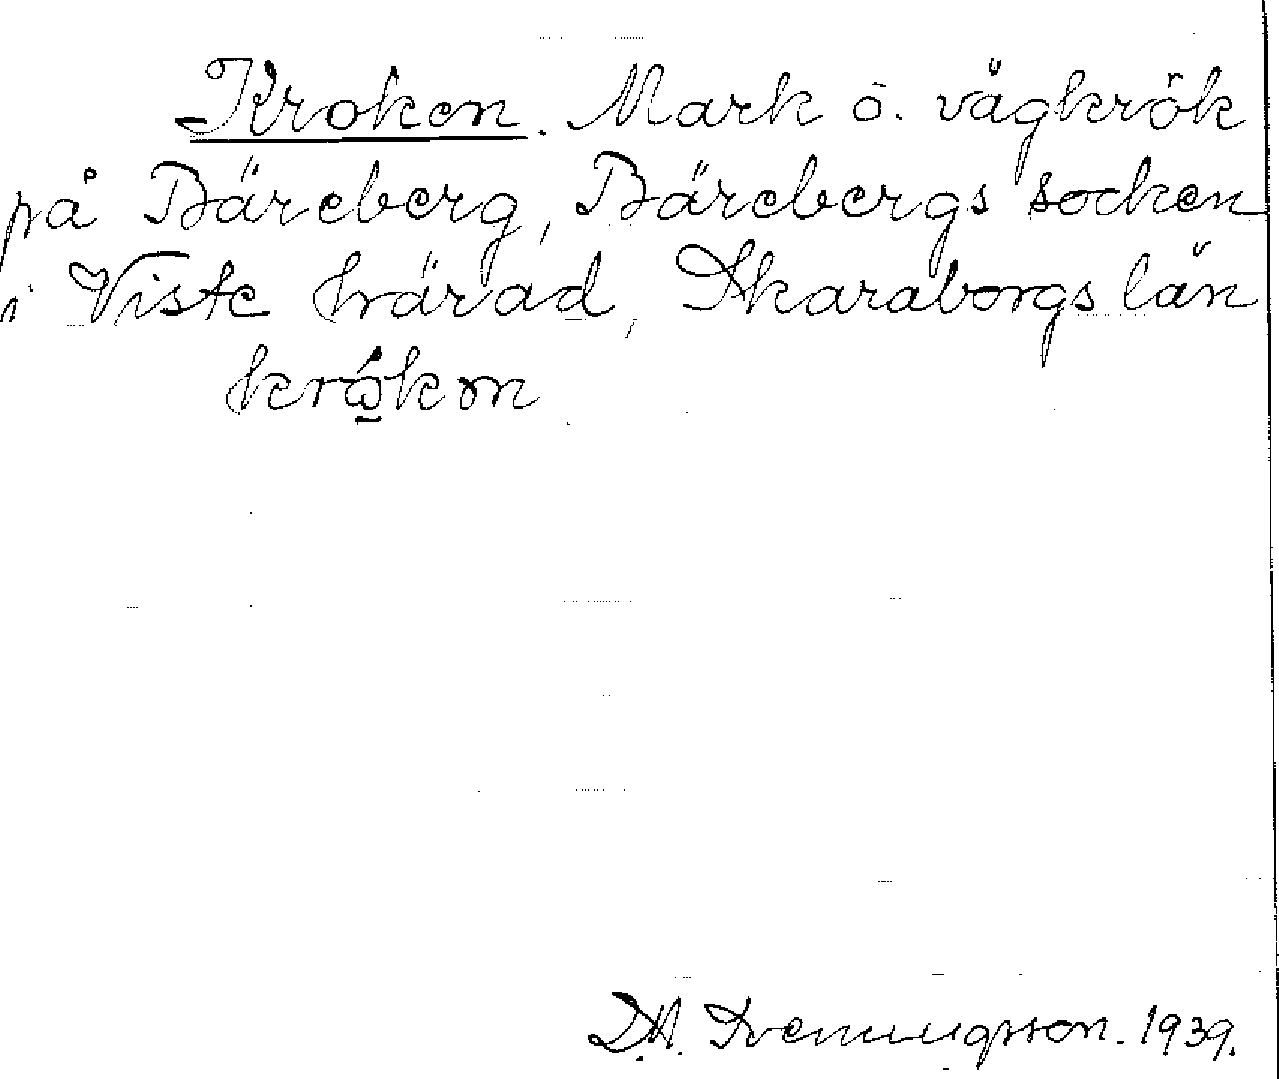 Kroken. Mark o. vägkrök
på Bäreberg, Bärebergs socken
i Viste härad, Skaraborgs län
krókən
D.A. Svenningsson. 1939.